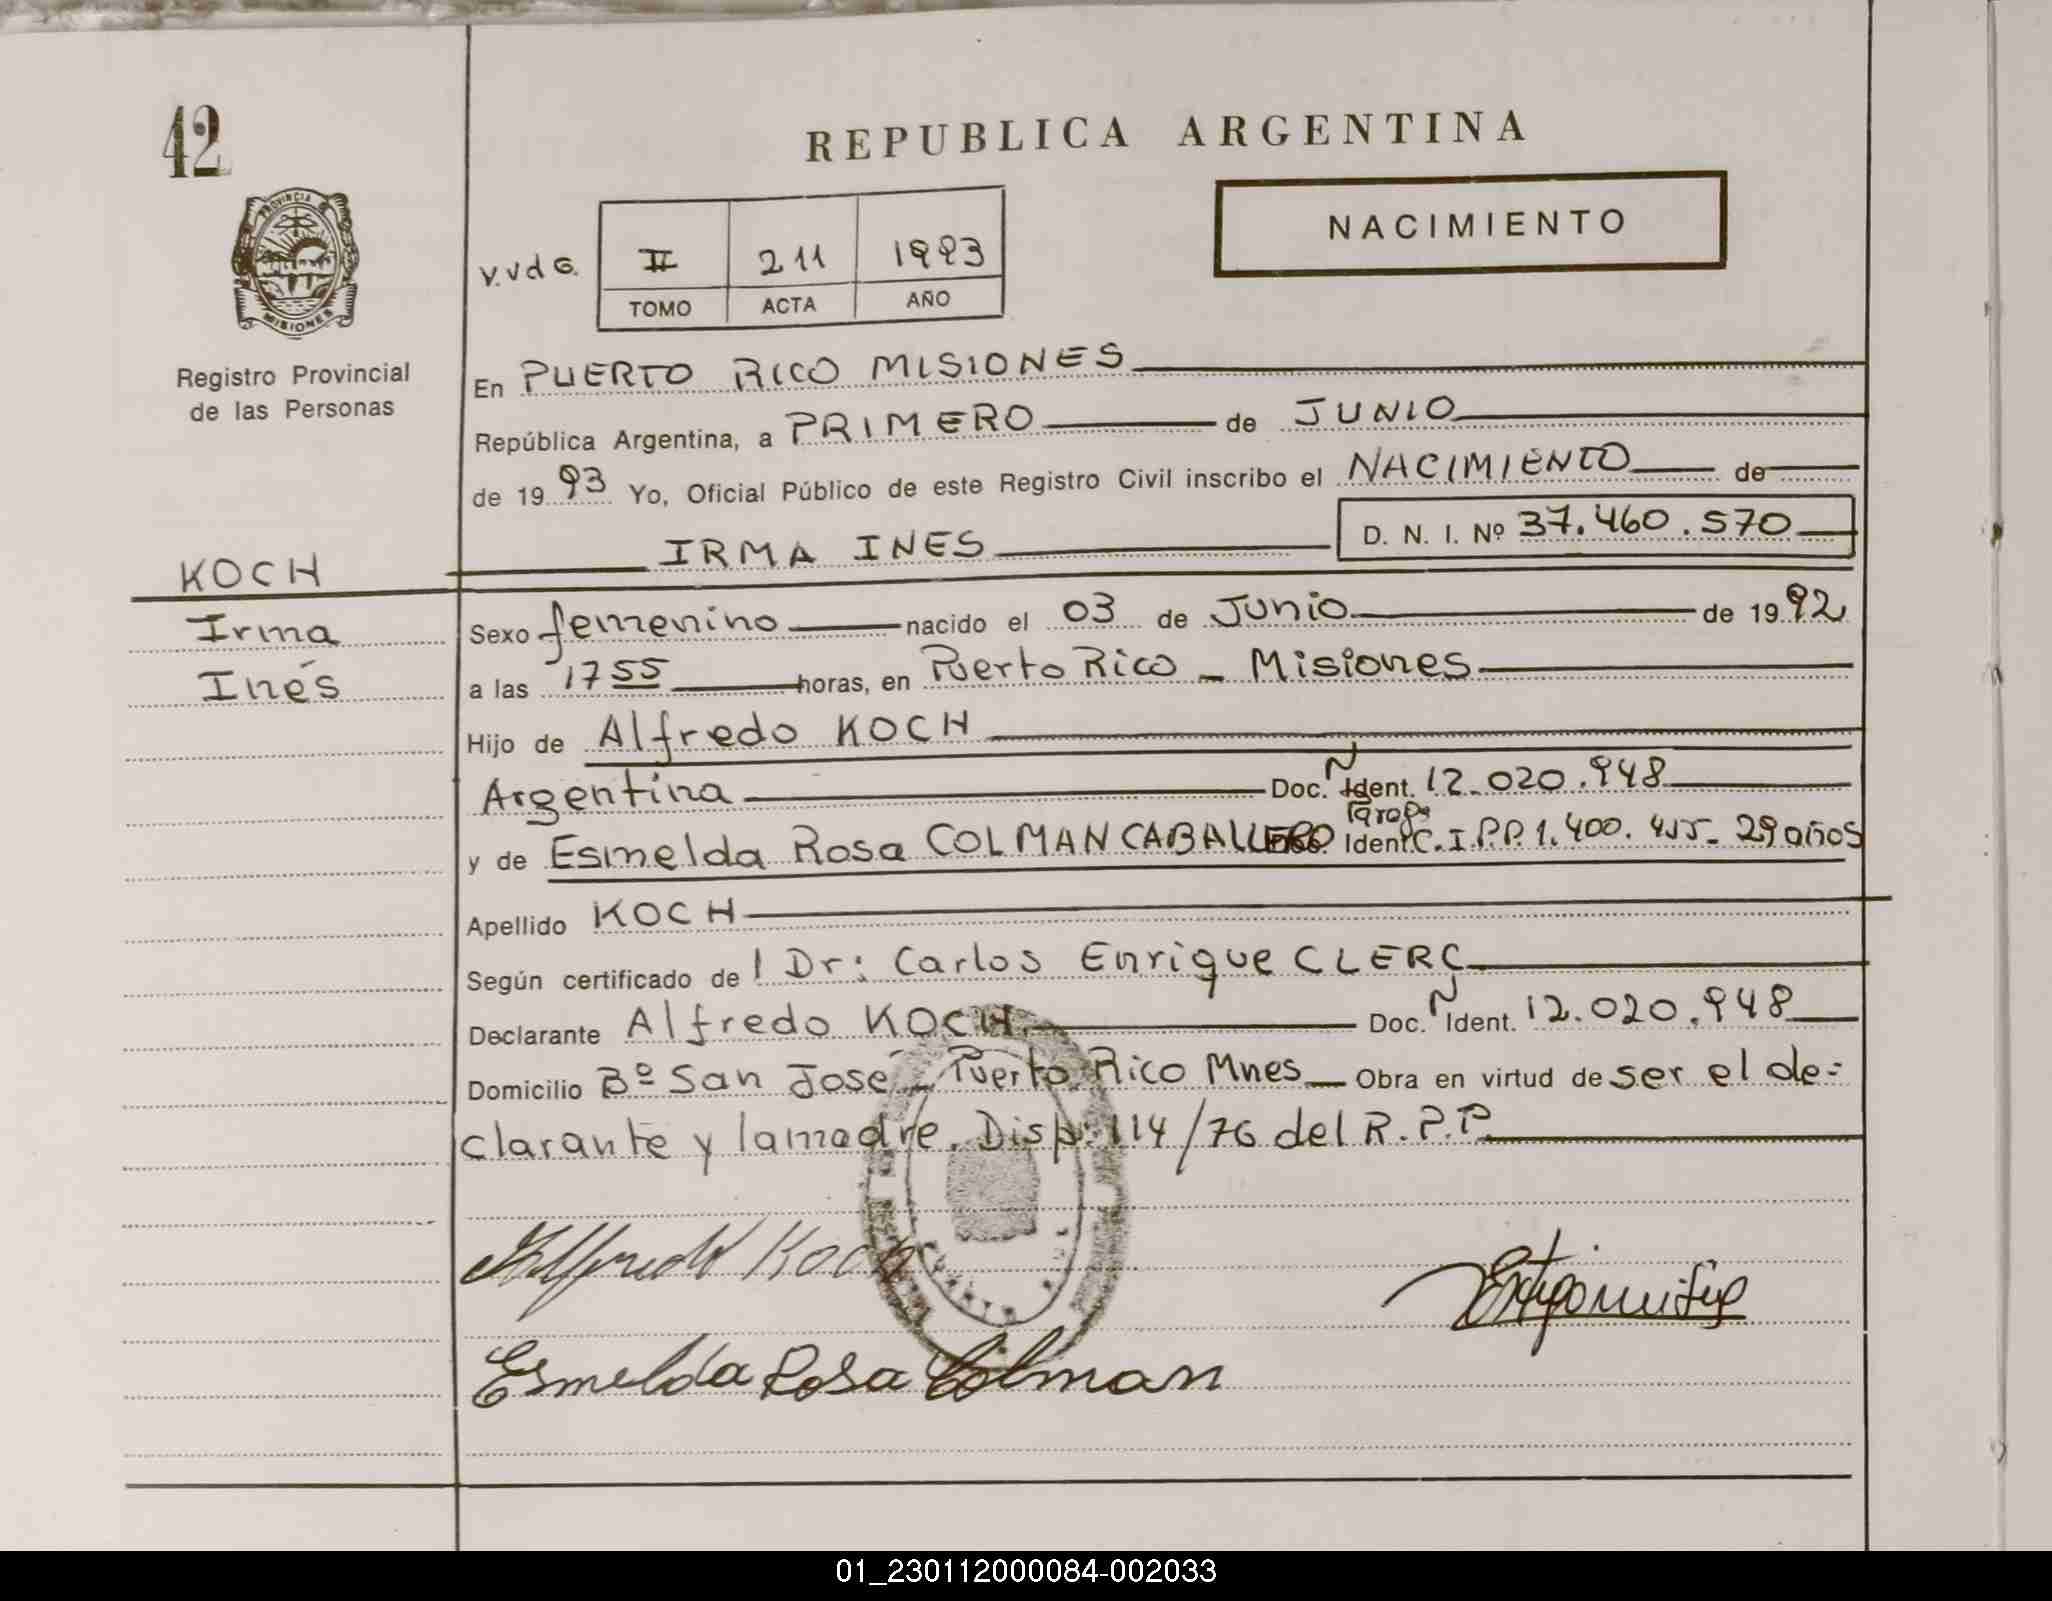 42
REPUBLICA ARGENTINA
NACIMIENTO
V.V d G. II 211 1993
TOMO ACTA AÑO
PROVINCIA DE
MISIONES
Registro Provincial
de las Personas
En PUERTO RICO MISIONES
República Argentina, a PRIMERO de JUNIO
de 1993 Yo, Oficial Público de este Registro Civil inscribo el NACIMIENTO de
IRMA INES D. N. I. Nº 37.460.570
KOCH
Irma
Inés
Sexo femenino nacido el 03 de Junio de 1992
a las 17 55 horas, en Puerto Rico - Misiones
Hijo de Alfredo KOCH
Argentina Doc. Ñ Ident. 12.020.948
y de Esmelda Rosa COLMAN CABALLERO Ident C.I.P.P. 1.400.455 - 29 años
Apellido KOCH
Según certificado de l Dr: Carlos Enrique CLERC
Declarante Alfredo KOCH Doc. Ñ Ident. 12.020.948
Domicilio Bº San José - Puerto Rico Mnes Obra en virtud de ser el de=
clarante y la madre. Disp. 114/76 del R.P.P.
Alfredo Koch
Esmelda Rosa Colman
01_230112000084-002033